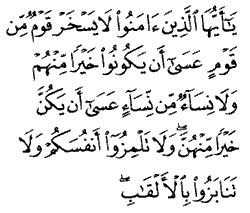 يَـٰٓأَيُّهَا ٱلَّذِينَ ءَامَنُوا۟ لَا يَسْخَرْ قَوْمٌ مِّن
قَوْمٍ عَسَىٰٓ أَن يَكُونُوا۟ خَيْرًا مِّنْهُمْ
وَلَا نِسَآءٌ مِّن نِّسَآءٍ عَسَىٰٓ أَن يَكُنَّ
خَيْرًا مِّنْهُنَّ ۖ وَلَا تَلْمِزُوٓا۟ أَنفُسَكُمْ وَلَا
تَنَابَزُوا۟ بِٱلْأَلْقَـٰبِ ۖ